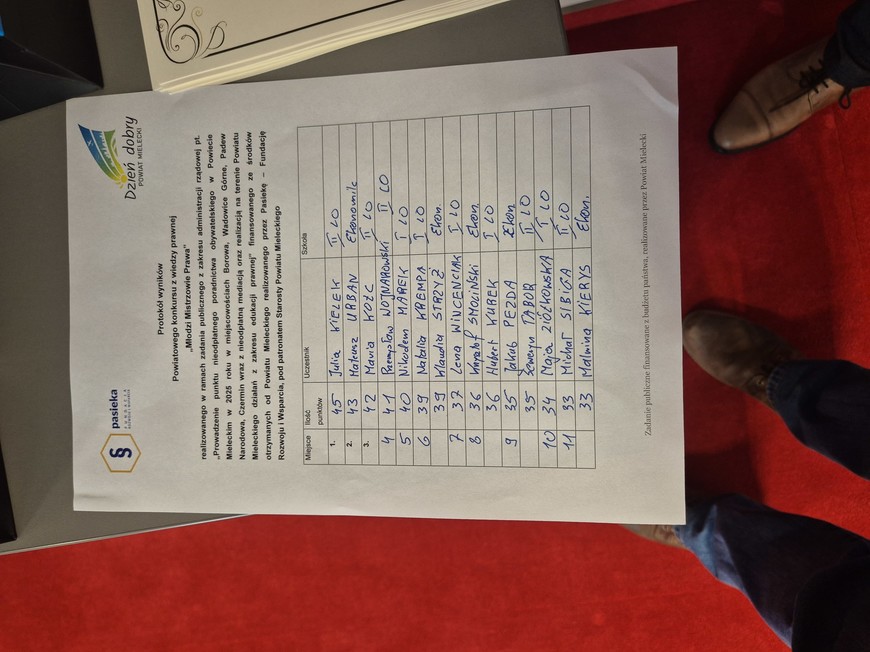 pasieka
Dzień dobry
POWIAT MIELECKI
Protokół wyników
Powiatowego konkursu z wiedzy prawnej
„Młodzi Mistrzowie Prawa”
realizowanego w ramach zadania publicznego z zakresu administracji rządowej pt.
„Prowadzenie punktu nieodpłatnego poradnictwa obywatelskiego w Powiecie
Mieleckim w 2025 roku w miejscowościach Borowa, Wadowice Górne, Padew
Narodowa, Czermin wraz z nieodpłatną mediacją oraz realizacją na terenie Powiatu
Mieleckiego działań z zakresu edukacji prawnej” finansowanego ze środków
otrzymanych od Powiatu Mieleckiego realizowanego przez Pasiekę – Fundację
Rozwoju i Wsparcia, pod patronatem Starosty Powiatu Mieleckiego
Miejsce Ilość punktów Uczestnik Szkoła
1. 45 Julia KIELEK II LO
2. 43 Mateusz URBAN Ekonomik
3. 42 Maria KOŁC II LO
4 41 Przemysław WOJNAROWSKI II LO
5 40 Nikodem MAREK I LO
6 39 Natalia KREMPA I LO
39 Klaudia STRZYŻ Ekon.
7 37 Lena WINCENCIAK I LO
8 36 Krzysztof SMOLIŃSKI Ekon.
36 Hubert KUREK I LO
9 35 Jakub PEZDA Ekon.
35 Seweryn TABOR II LO
10 34 Maja ZIÓŁKOWSKA I LO
11 33 Michał SIBIGA II LO
33 Malwina KIERYS Ekon.
Zadanie publiczne finansowane z budżetu państwa, realizowane przez Powiat Mielecki